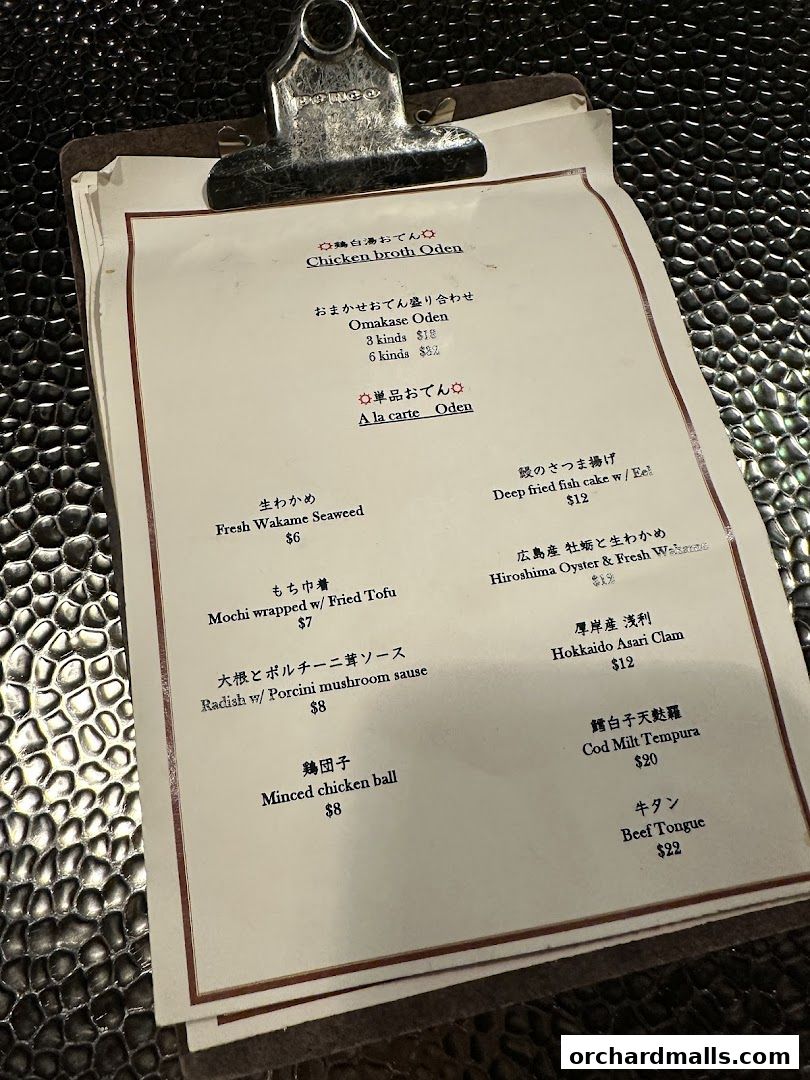 鶏白湯おでん
Chicken broth Oden
おまかせおでん盛り合わせ
Omakase Oden
3 kinds $18
6 kinds $32
単品おでん
A la carte Oden
生わかめ
Fresh Wakame Seaweed
$6
もち巾着
Mochi wrapped w/ Fried Tofu
$7
大根とポルチーニ茸ソース
Radish w/ Porcini mushroom sause
$8
鶏団子
Minced chicken ball
$8
鰻のさつま揚げ
Deep fried fish cake w/ Eel
$12
広島産 牡蛎と生わかめ
Hiroshima Oyster & Fresh Wakame
$12
厚岸産 浅利
Hokkaido Asari Clam
$12
鱈白子天麩羅
Cod Milt Tempura
$20
牛タン
Beef Tongue
$22
orchardmalls.com